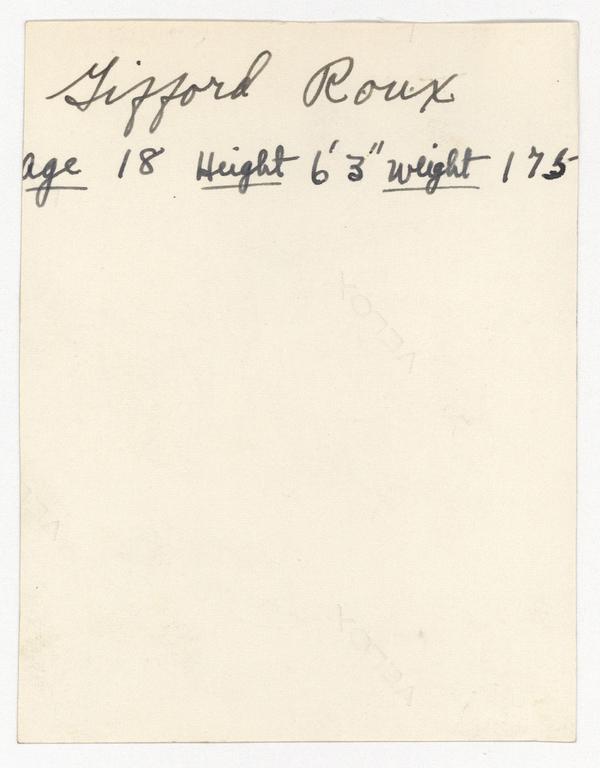 Gifford Roux
age 18 Height 6'3" weight 175
VELOX
VELOX